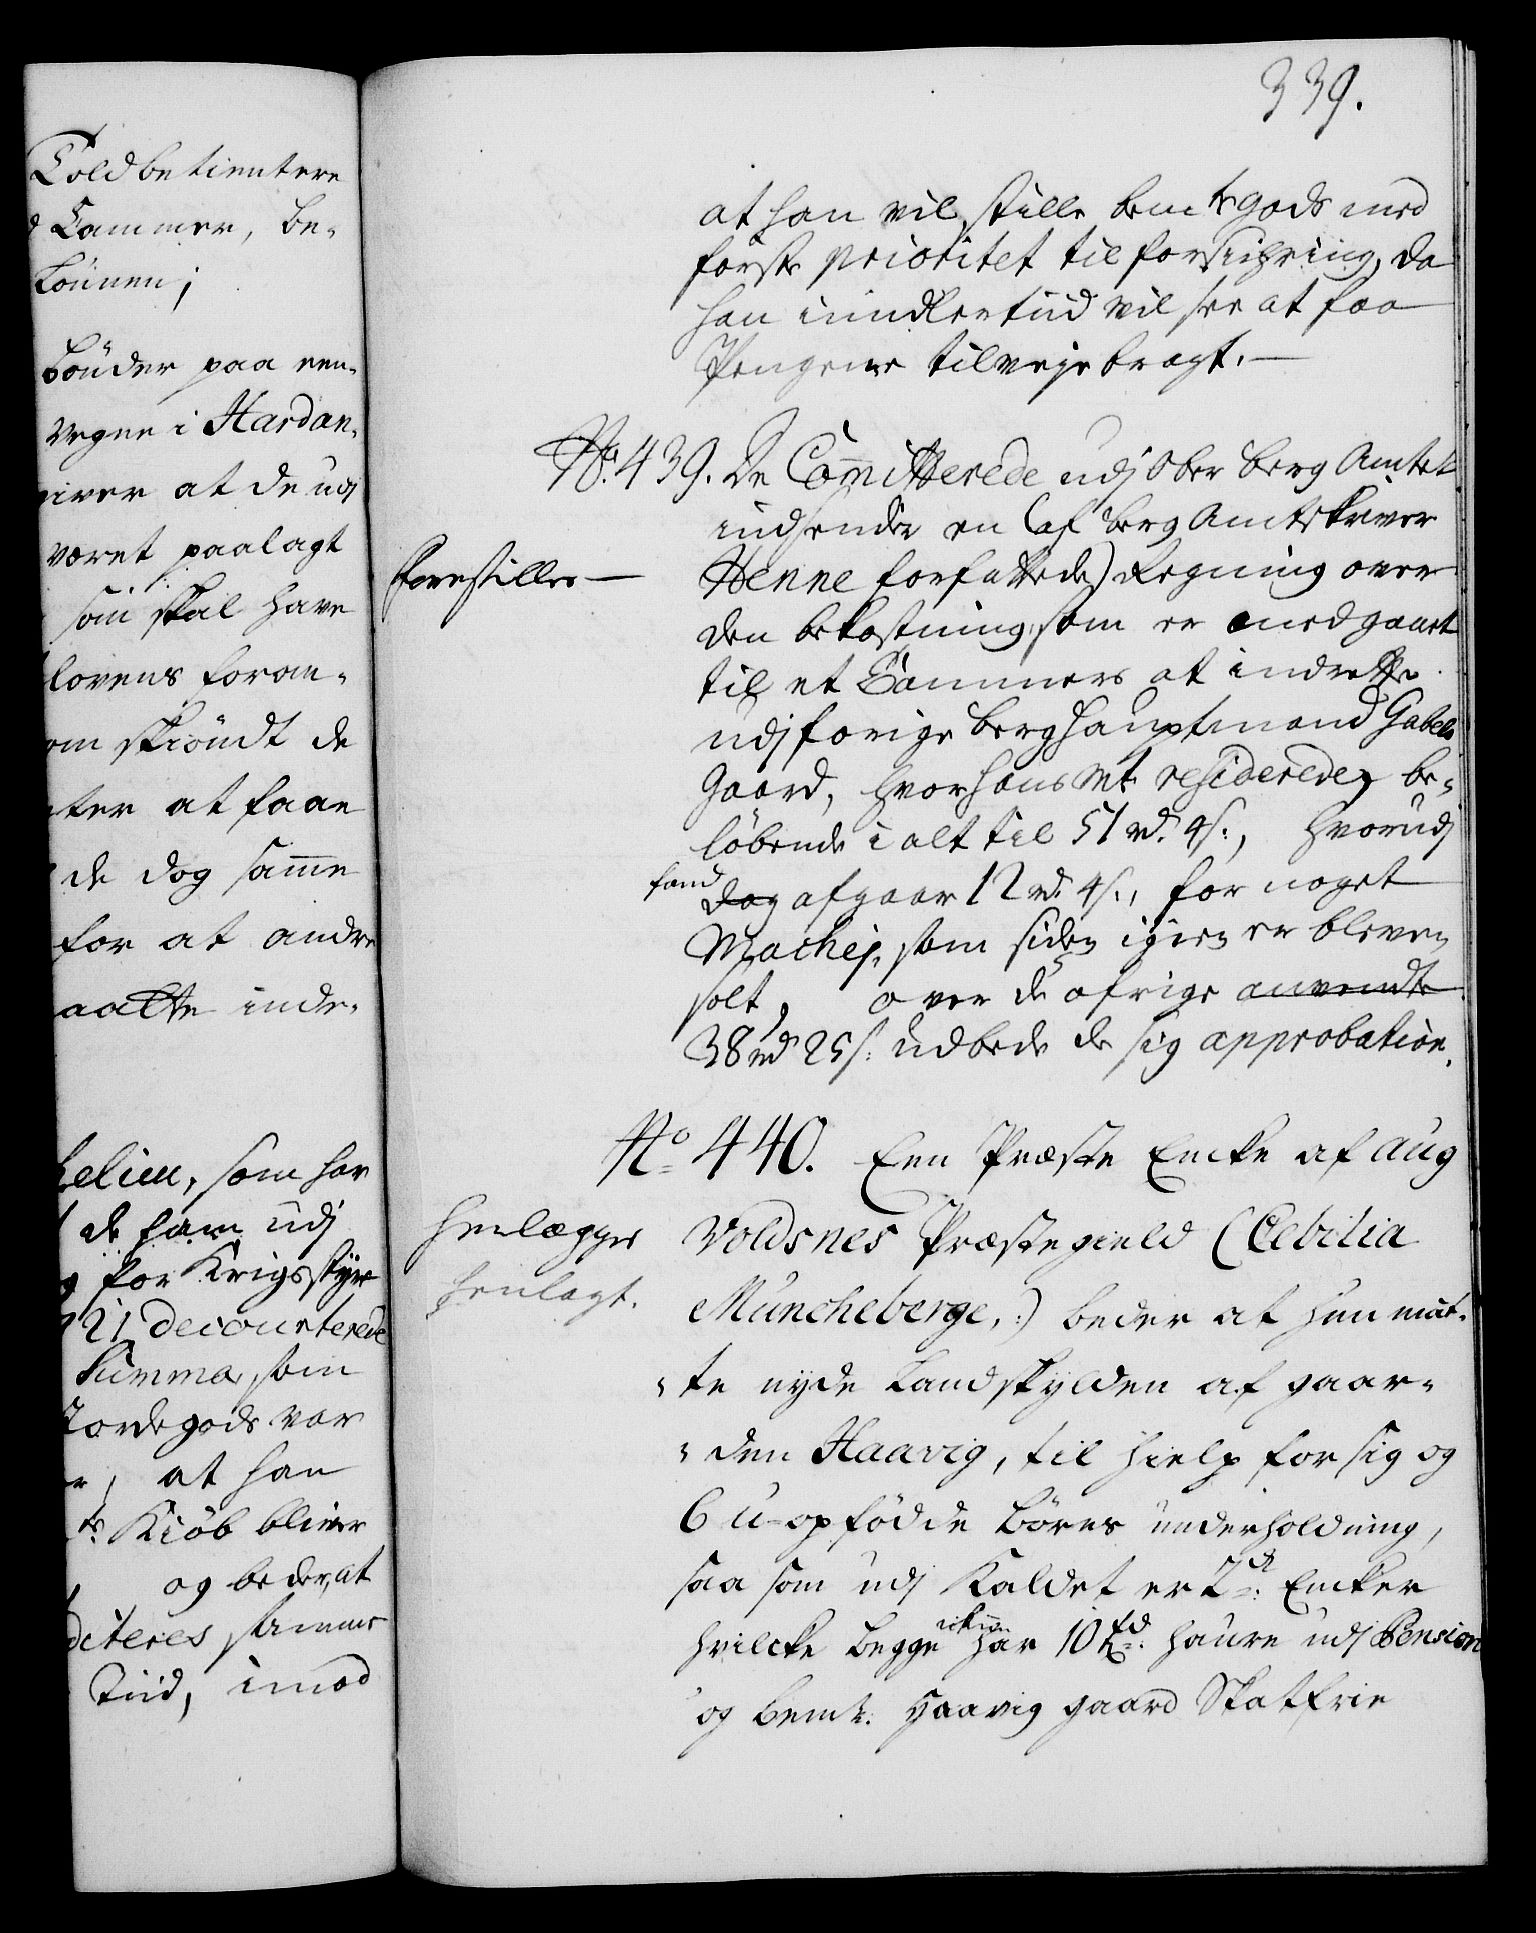 Toldbetientere
Cammer, be-
Lönnen;
bönder paa een-
vegne i Hardan-
giver at de udj
været paalagt
som skal have
lovens foran-
om skiöndt de
ter at faae
de dog samme
for at andre
maatte inde-
helien, som har
de ham udj
for Krigsstyr
21 decourterede
Summa, som
Jordegods var
at han
Kiöb bliver
og beder, at
diteres summer
Tiid, imod
339.
at han vil stille bemte gods med
förste prioritet til forsichring, da
han imidlertiid vil see at faa
Pengene tilveje bragt.
No. 439. De Committerede udj Ober berg Amtet
indsender en (af berg Amtskriver
Henne forfattede) Regning over
den bekostning, som er medgaaet
til et Cammers at indrette
udj forige berghauptmand Gabels
Gaard, hvor hans Mt. residerede, be-
löbende i alt til 51 rd. 4 s., hvorudj
dog afgaar 12 rd. 4 s., for noget
Machej, som siden igien er bleven
solt, over de öfrige anvendte
38 rd 25 s. udbede de sig approbation.
Forestilles
No. 440. Een Præste Encke af Aug
Voldsnes Præstegield (Cebilia
Müncheberge,:) beder at hun maat-
te nyde Landskylden af gaar-
den Haavig, til hielp for sig og
6 U-opfödde Börns underholdning,
saa som udj Kaldet er 2de: Encker
hvilcke begge ickun har 10 rd: haver udj Pension
og bemte. Haavig gaard Skatfrie
Henlægges
henlagt.